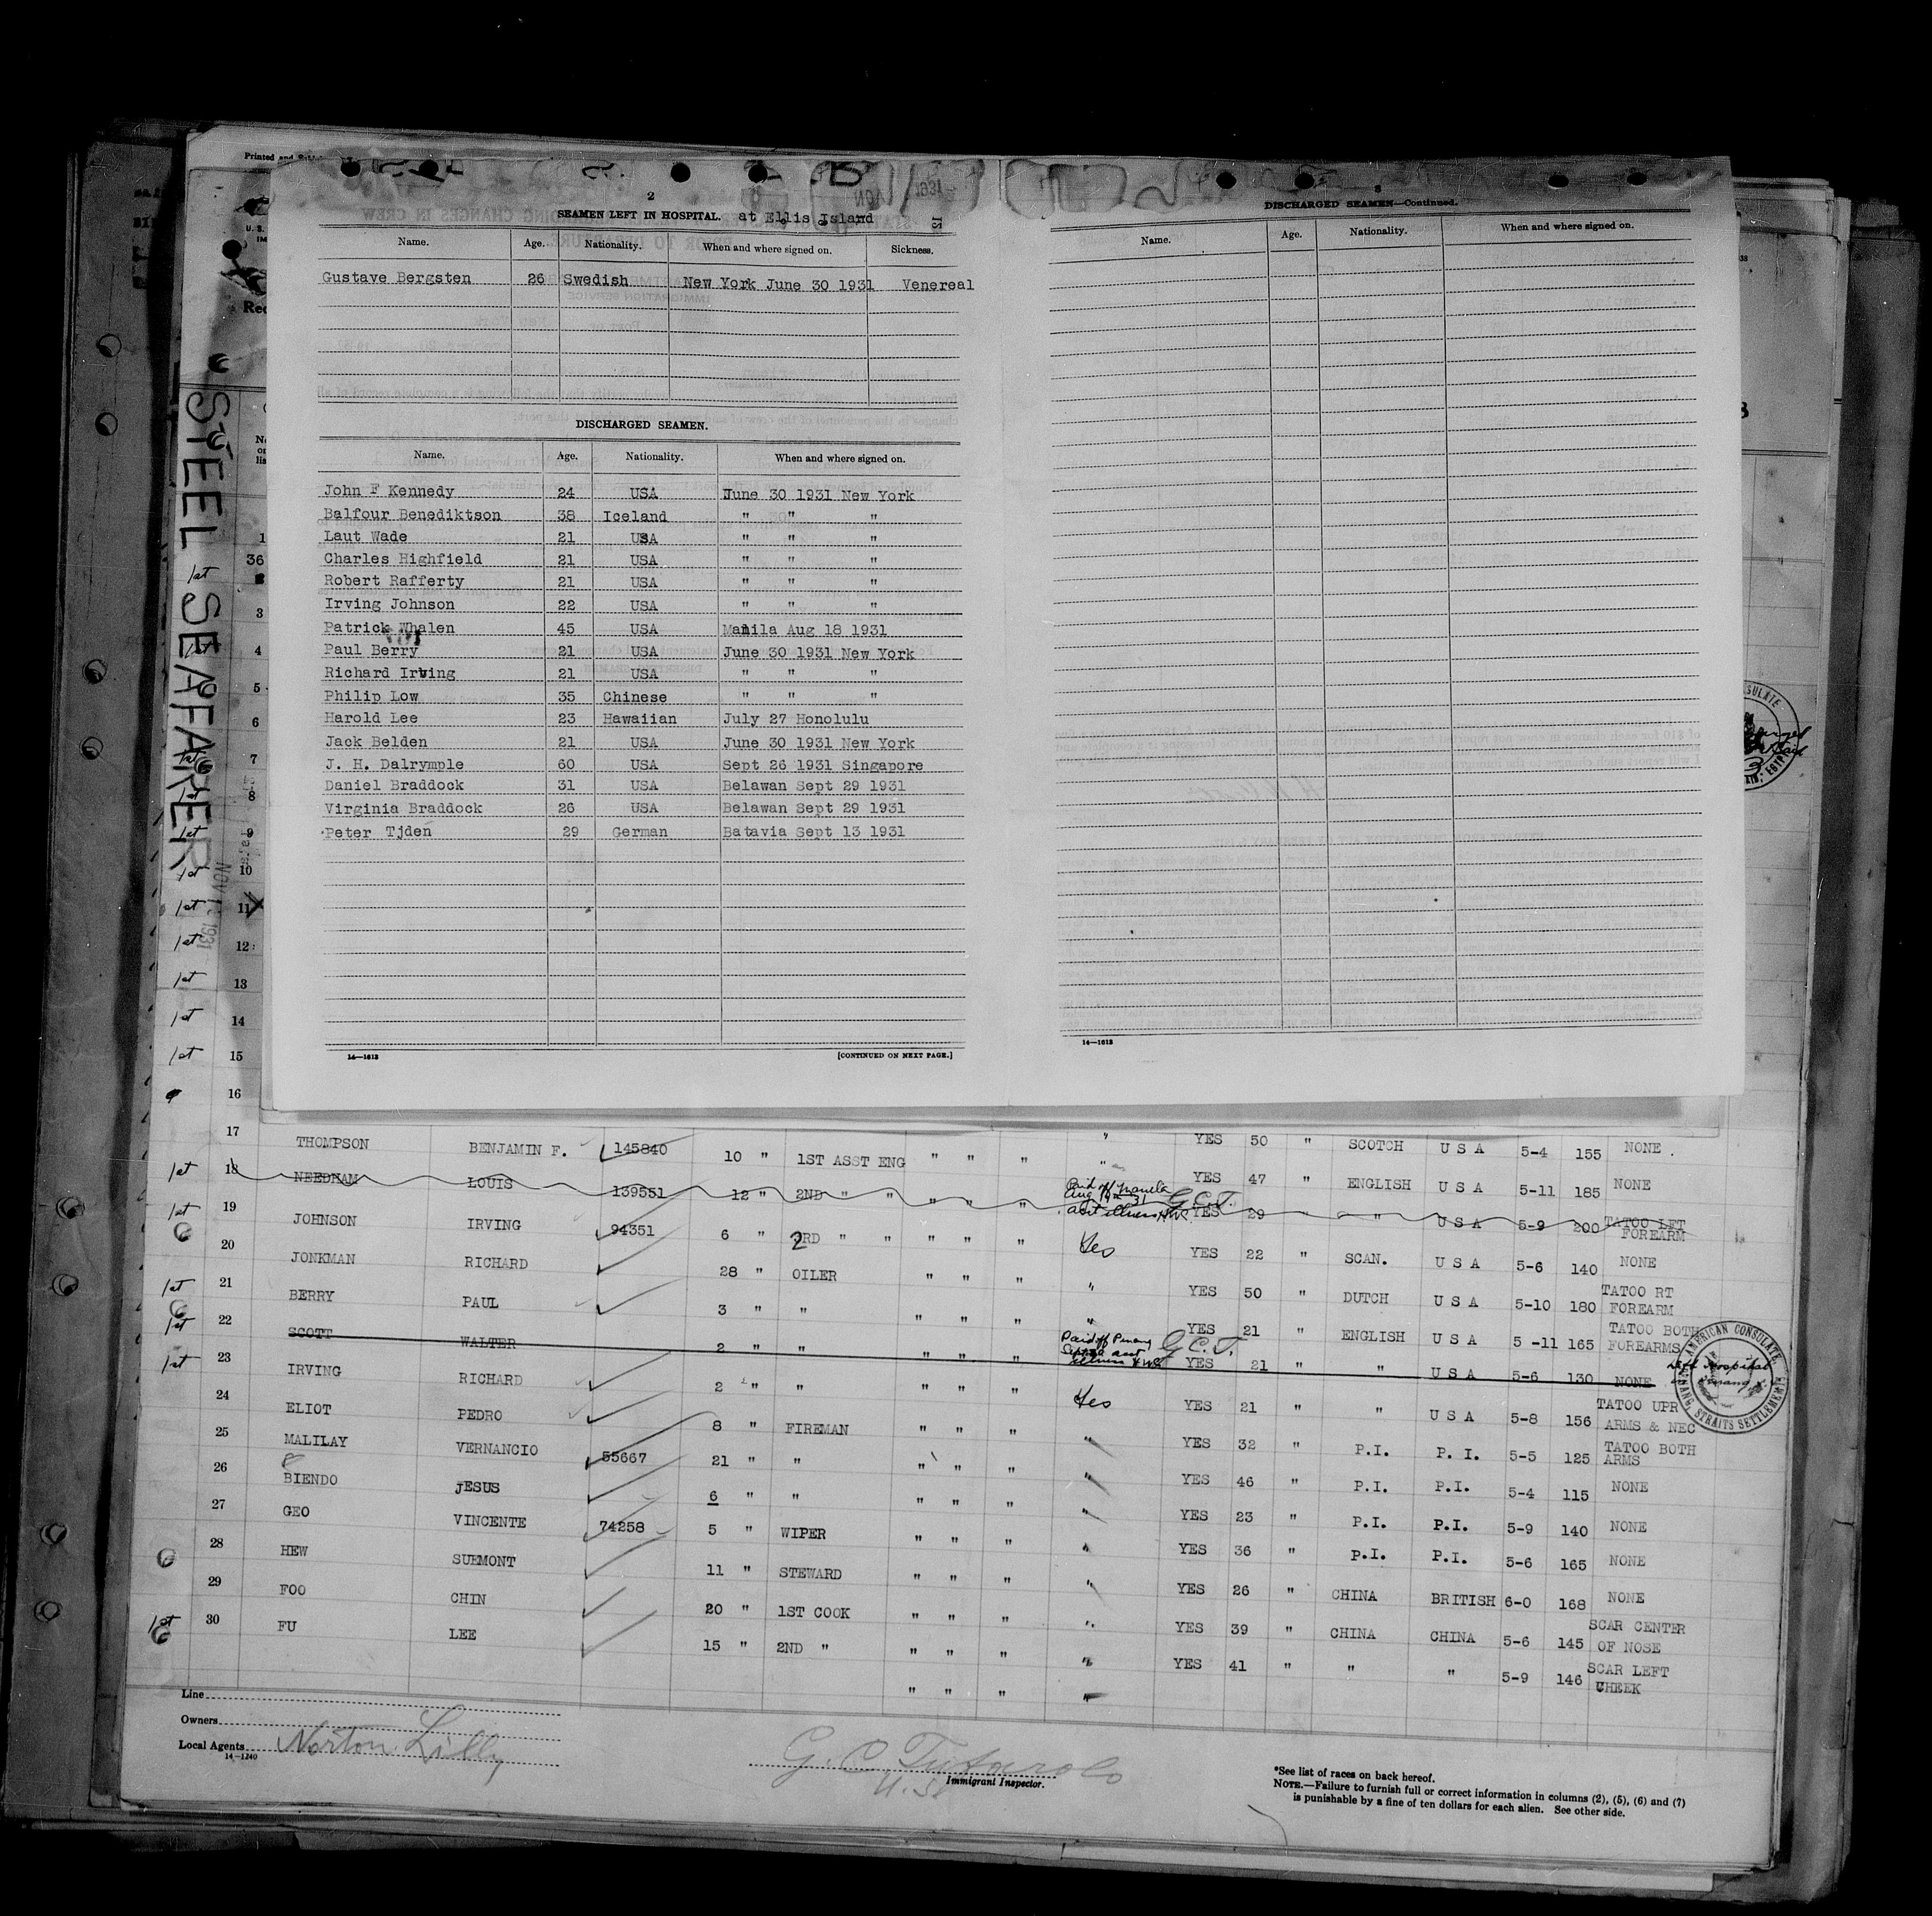 Printed and
NOV 1931
2
SEAMEN LEFT IN HOSPITAL. at Ellis Island
Name. Age. Nationality. When and where signed on. Sickness.
Gustave Bergsten 26 Swedish New York June 30 1931 Venereal
DISCHARGED SEAMEN.
Name. Age. Nationality. When and where signed on.
John F Kennedy 24 USA June 30 1931 New York
Balfour Benediktson 38 Iceland " " "
Laut Wade 21 USA " " "
Charles Highfield 21 USA " " "
Robert Rafferty 21 USA " " "
Irving Johnson 22 USA " " "
Patrick Whalen 45 USA Manila Aug 18 1931
Paul Berry 21 USA June 30 1931 New York
Richard Irving 21 USA " " "
Philip Low 35 Chinese " " "
Harold Lee 23 Hawaiian July 27 Honolulu
Jack Belden 21 USA June 30 1931 New York
J. H. Dalrymple 60 USA Sept 26 1931 Singapore
Daniel Braddock 31 USA Belawan Sept 29 1931
Virginia Braddock 26 USA Belawan Sept 29 1931
Peter Tjden 29 German Batavia Sept 13 1931
14—1613 [CONTINUED ON NEXT PAGE.]
3
DISCHARGED SEAMEN—Continued.
Name. Age. Nationality. When and where signed on.
14—1613
STEEL SEAFARER
NOV 1931
1
36
3
1st
4
5
6
7
1st
8
1st
9
1st
10
1st
11
1st
12
1st
13
1st
14
1st
15
1st
16
17 THOMPSON BENJAMIN F. 145840 10 " 1ST ASST ENG " " " " YES 50 " SCOTCH U S A 5-4 155 NONE .
1st 18 NEEDHAM LOUIS 139551 12 " 2ND " " " " " YES 47 " ENGLISH U S A 5-11 185 NONE
Paid off Manila
Aug 19 31 G.C.T.
acct illness
YES 29 " " U S A 5-9 200 TATOO LFT
FOREARM
1st 19 JOHNSON IRVING 94351 6 " 2 3RD " " " " " Yes YES 22 " SCAN. U S A 5-6 140 NONE
20 JONKMAN RICHARD 28 " OILER " " " " YES 50 " DUTCH U S A 5-10 180 TATOO RT
FOREARM
1st 21 BERRY PAUL 3 " " " " " " YES 21 " ENGLISH U S A 5-11 165 TATOO BOTH
FOREARMS
1st 22 SCOTT WALTER 2 " " " " " YES 21 " " U S A 5-6 130 NONE
Paid off Penang G.C.T.
Sept acct
illness
Left Hospital
Penang
AMERICAN CONSULATE, PENANG, STRAITS SETTLEMENTS
1st 23 IRVING RICHARD 2 " " " " " Yes YES 21 " " U S A 5-8 156 TATOO UPR
ARMS & NEC
24 ELIOT PEDRO 8 " FIREMAN " " " " YES 32 " P.I. P. I. 5-5 125 TATOO BOTH
ARMS
25 MALILAY VERNANCIO 55667 21 " " " " " " YES 46 " P.I. P.I. 5-4 115 NONE
26 BIENDO JESUS 6 " " " " " " YES 23 " P.I. P.I. 5-9 140 NONE
27 GEO VINCENTE 74258 5 " WIPER " " " " YES 36 " P.I. P.I. 5-6 165 NONE
28 HEW SUEMONT 11 " STEWARD " " " " YES 26 " CHINA BRITISH 6-0 168 NONE
29 FOO CHIN 20 " 1ST COOK " " " " YES 39 " CHINA CHINA 5-6 145 SCAR CENTER
OF NOSE
1st 30 FU LEE 15 " 2ND " " " " " YES 41 " " " 5-9 146 SCAR LEFT
CHEEK
Line
Owners
Local Agents Norton Lilly
14—1240
Immigrant Inspector.
*See list of races on back hereof.
NOTE.—Failure to furnish full or correct information in columns (2), (5), (6) and (7)
is punishable by a fine of ten dollars for each alien. See other side.